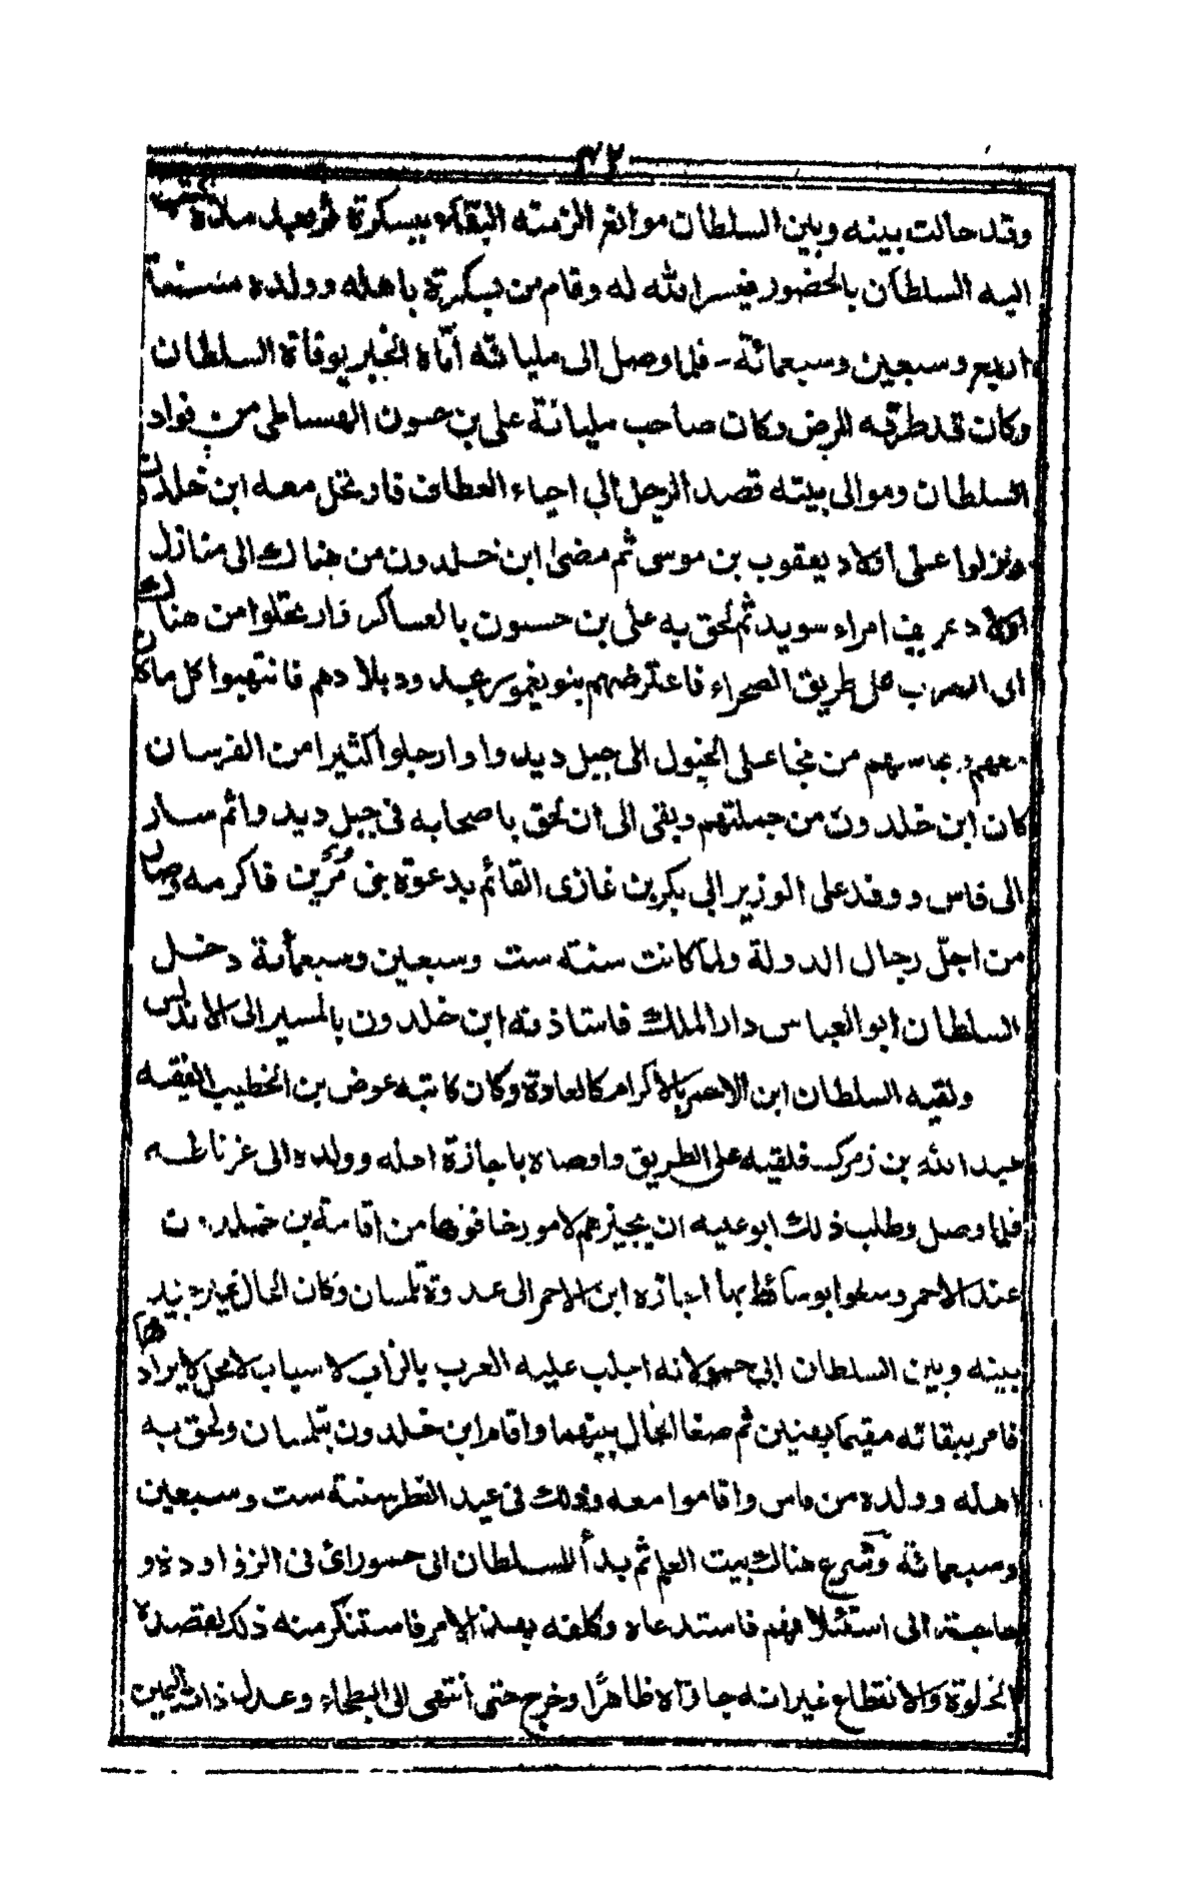 ٤٢
وقد حالت بينه وبين السلطان موانع الزمته البقاء ببسكرة ثم بعد مدة كتب
اليه السلطان بالحضور فيسر الله له وقام من بسكرة باهله وولده سنة
اربع وسبعين وسبعمائة - فلما وصل الى مليانه أتاه الخبر بوفاة السلطان
وكان قد طرقه المرض وكان صاحب مليانة على بن حسون الهساطى من قواد
السلطان وموالى بيته قصد الرحل الى احياء العطاف فارتحل معه ابن خلدون
ونزلوا على اولاد يعقوب بن موسى ثم مضى ابن خلدون من هناك الى منازل
اولاد عريف امراء سويد ثم لحق به على بن حسون بالعساكر فارتحلوا من هناك
الى المغرب على طريق الصحراء فاعترضهم بنو يغمور بحدود بلادهم فانتهبوا كل ما كان
معهم من نجا على الخيول الى جبل ديد واوارجلوا كثيرا من الفرسان
كان ابن خلدون من جملتهم وبقى الى ان لحق باصحابه فى جبل ديد واثم سار
الى فاس ووفد على الوزير ابى بكر بن غازى القائم بدعوة بنى مرين فاكرمه وصار
من اجلّ رجال الدولة ولما كانت سنته ست وسبعين وسبعمأئة دخل
السلطان ابو العباس دار الملك فاستاذنه ابن خلدون بالمسير الى الاندلس
ولقيه السلطان ابن الاحمر بالاكرام كالعادة وكان كاتبه عوض بن الخطيب الفقيه
عبد الله بن زمرك فلقيه على الطريق واوصاه باجازة اهله وولده الى غرناطه
فلما وصل وطلب ذلك ابو عليه ان يجيزهم لامور خافوها من اقامته بن خلدون
عند الاحمر وسطوا بوسائط بها اجازه ابن الاحمر الى عدوة تلمسان وكان الحال
بينه وبين السلطان ابى حمو لانه اجلب عليه العرب بالزاب لاسباب لا محل لايرادها
فامر ببقائه مقيما بهنين ثم صفا الحال بينهما واقام ابن خلدون بتلمسان ولحق به
اهله وولده من فاس واقاموا معه وذلك فى عيد الفطر سنة ست وسبعين
وسبعمائة وشرع هناك يبث العلم ثم بدأ للسلطان ابى حمو رائ فى الزواودة و
حاجته الى استئلافهم فاستدعاه وكلفه بهذا الامر فاستنكر منه ذلك لقصده
الخلوة والانقطاع غير انه جاراه ظاهرًا وخرج حتى انتهى الى البطحاء وعدل ذات اليمين